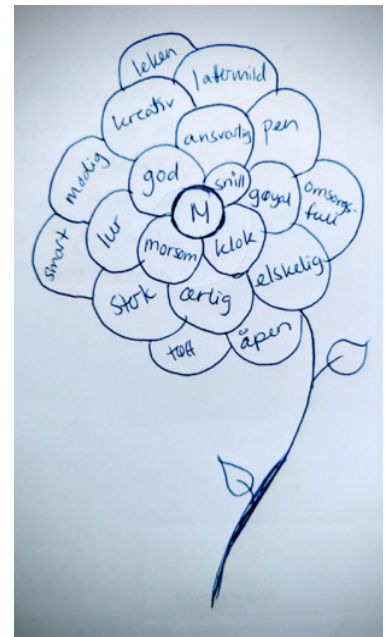 leken
latermild
kreativ
ansvarlig
pen
modig
god
snill
gøyal
omsorgs-
full
M
smart
lur
morsom
klok
elskelig
sterk
ærlig
tøff
åpen